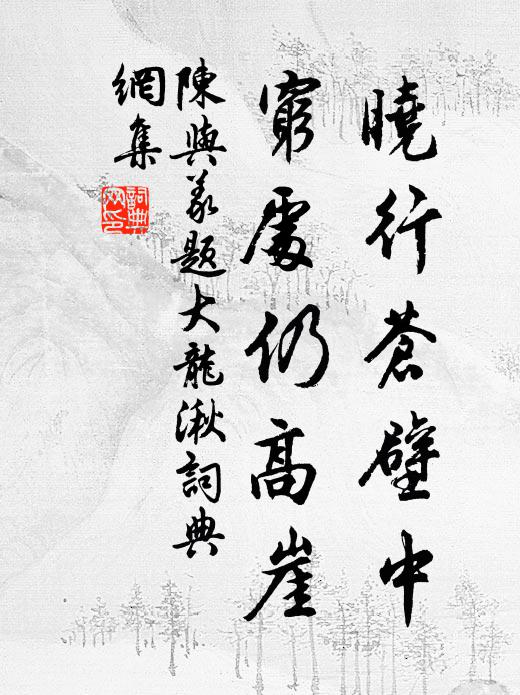 曉行蒼壁中
窮處仍高崖
陳與義題大龍湫詞典
網集
詞典
网印